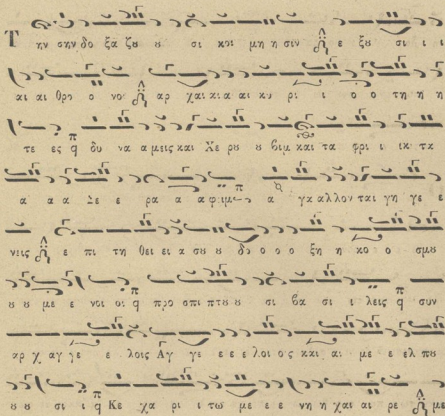 Τ ην σην δο ξα ζου ου σι κοι μη η σιν ε ξου σι ι ι
αι αι θρο ο νοι αρ χαι και αι κυ ρι ι ο ο τη η η
τε ες δυ να α μεις και Χε ρου ου βιμ και τα φρι ι ικ τα
α α α Σε ε ρα α α φιμ α γαλλον ται γη γε ε
νεις ε πι τη θει ει α σου δο ο ο ο ξη η κο ο σμου
ου ου με ε νοι οι προ σπι πτου ου σι βα σι ι λεις συν
αρ χαγ γε ε λοις Αγ γε ε ε ε λοι οι ος και αι με ε ελ που
ου ου σι ι Κε χα ρι ι τω με ε ε νη η χαι αι ρε με